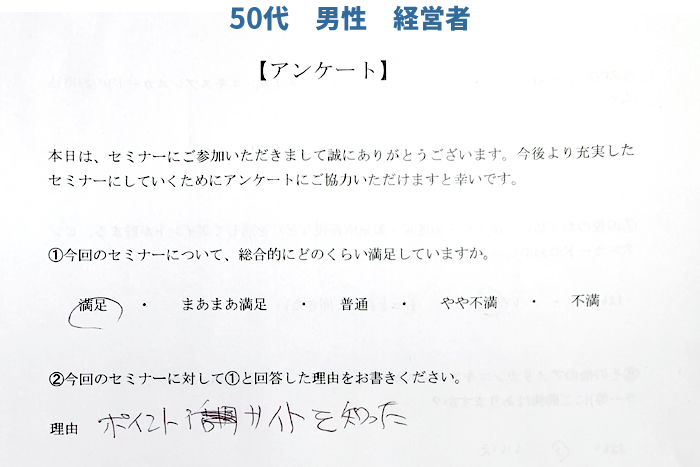 50代 男性 経営者
【アンケート】
本日は、セミナーにご参加いただきまして誠にありがとうございます。今後より充実した
セミナーにしていくためにアンケートにご協力いただけますと幸いです。
①今回のセミナーについて、総合的にどのくらい満足していますか。
満足 ・ まあまあ満足 ・ 普通 ・ やや不満 ・ 不満
②今回のセミナーに対して①と回答した理由をお書きください。
理由 ポイントサイトを知った